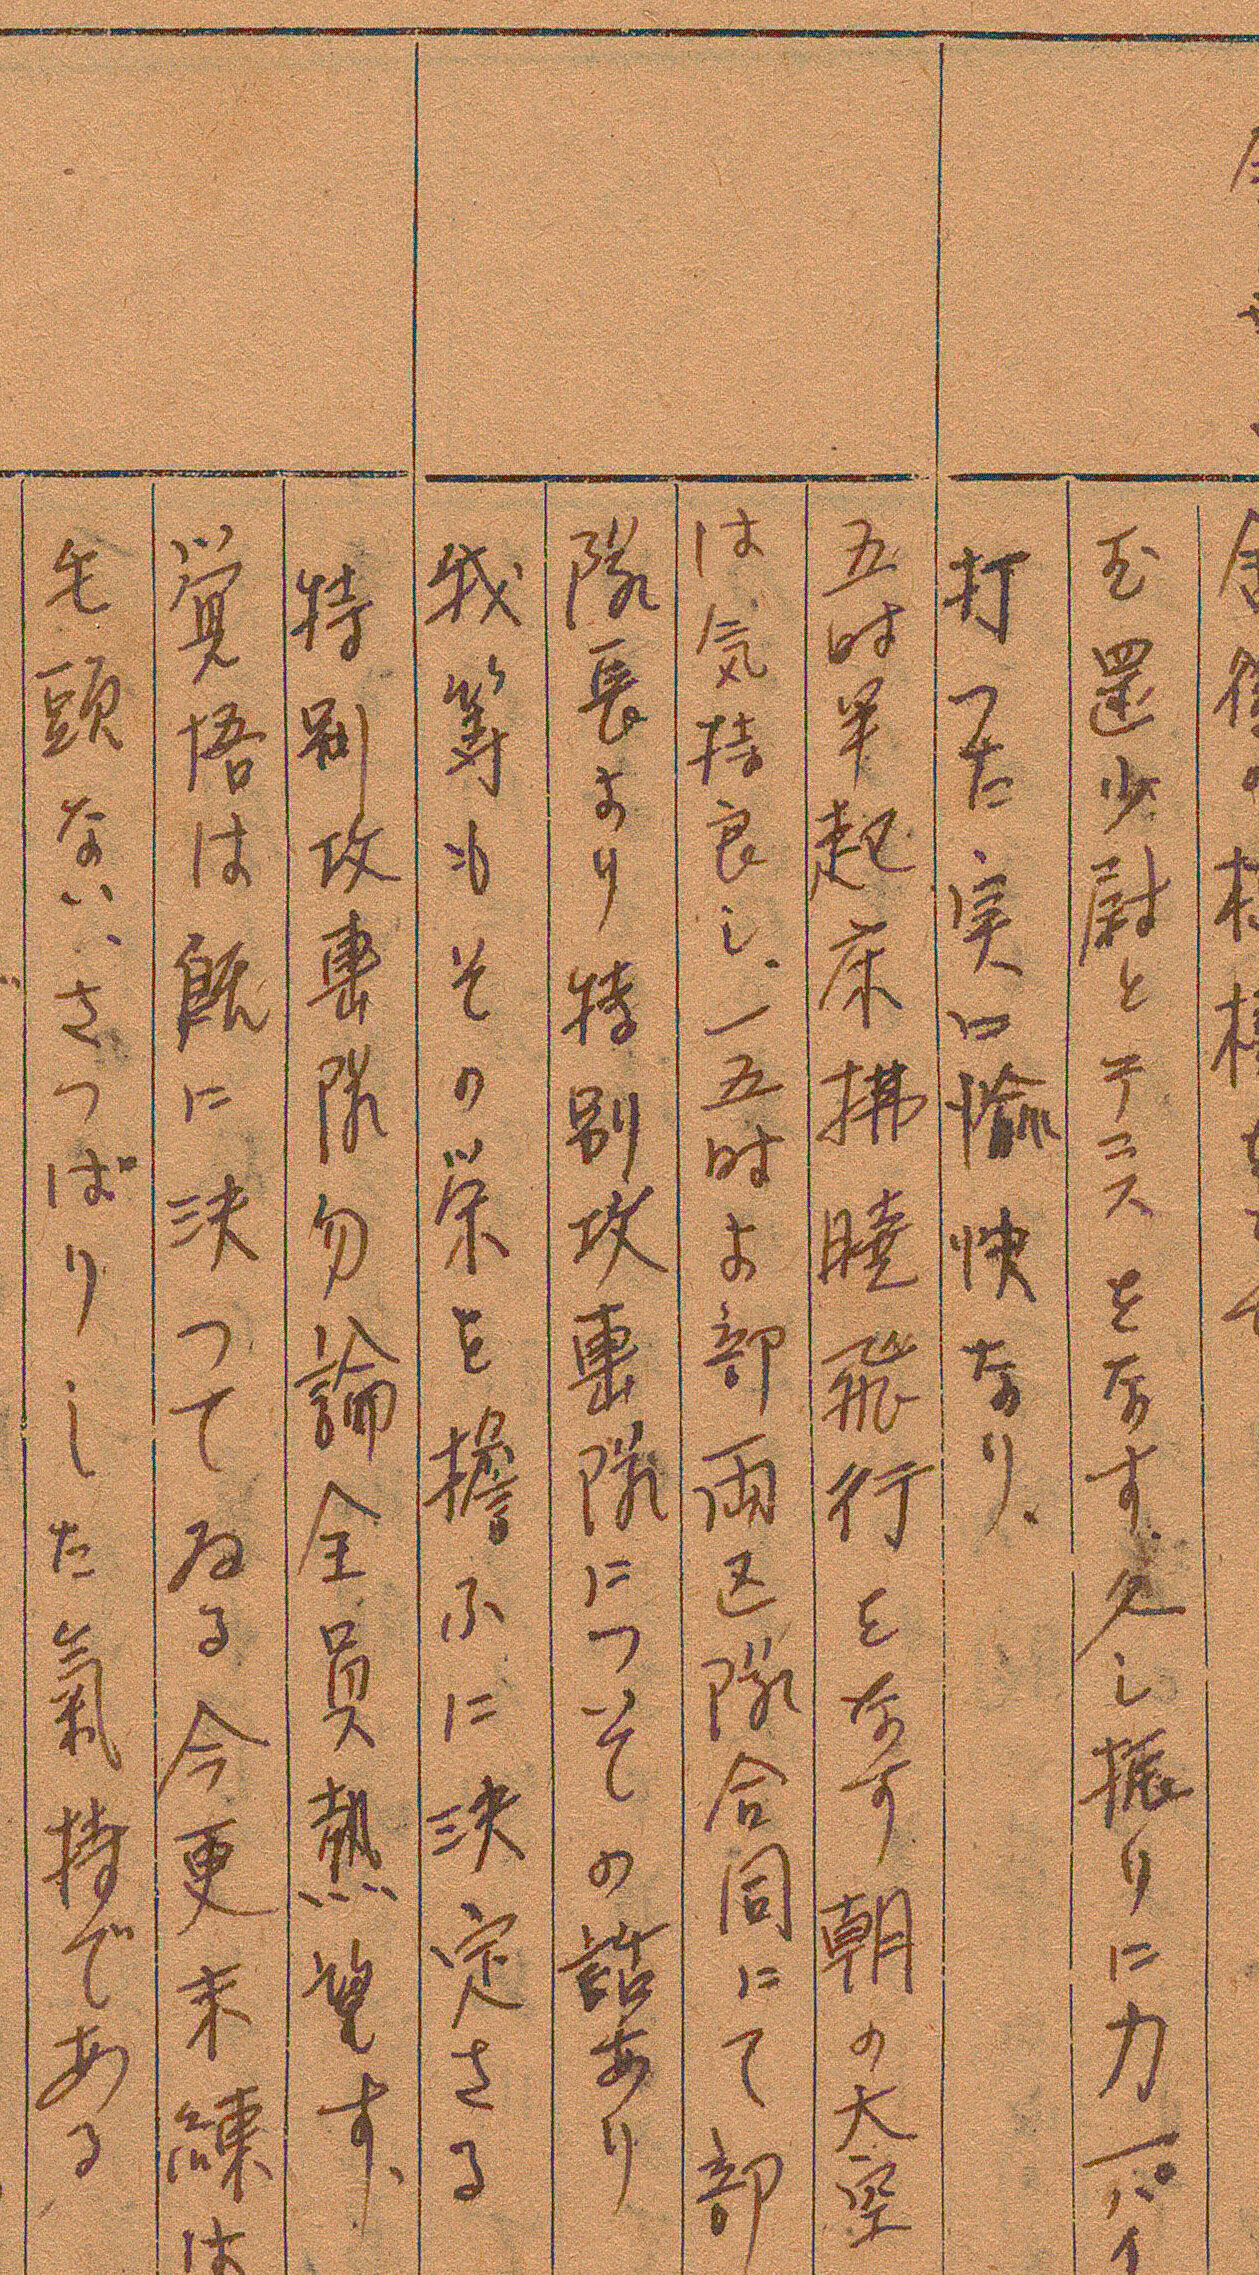 を還少尉とテニスをなす、久し振りに力一パイ
打つた実に愉快なり、
五時半起床拂暁飛行をなす朝の大空
は気持良し、一五時より部両区隊合同にて部
隊長より特別攻撃隊につその話あり
我等もその栄を擔ふに決定さる
特別攻撃隊勿論全員熱望す、
覚悟は既に決つてゐる今更未練は
毛頭ない、さつぱりした氣持である